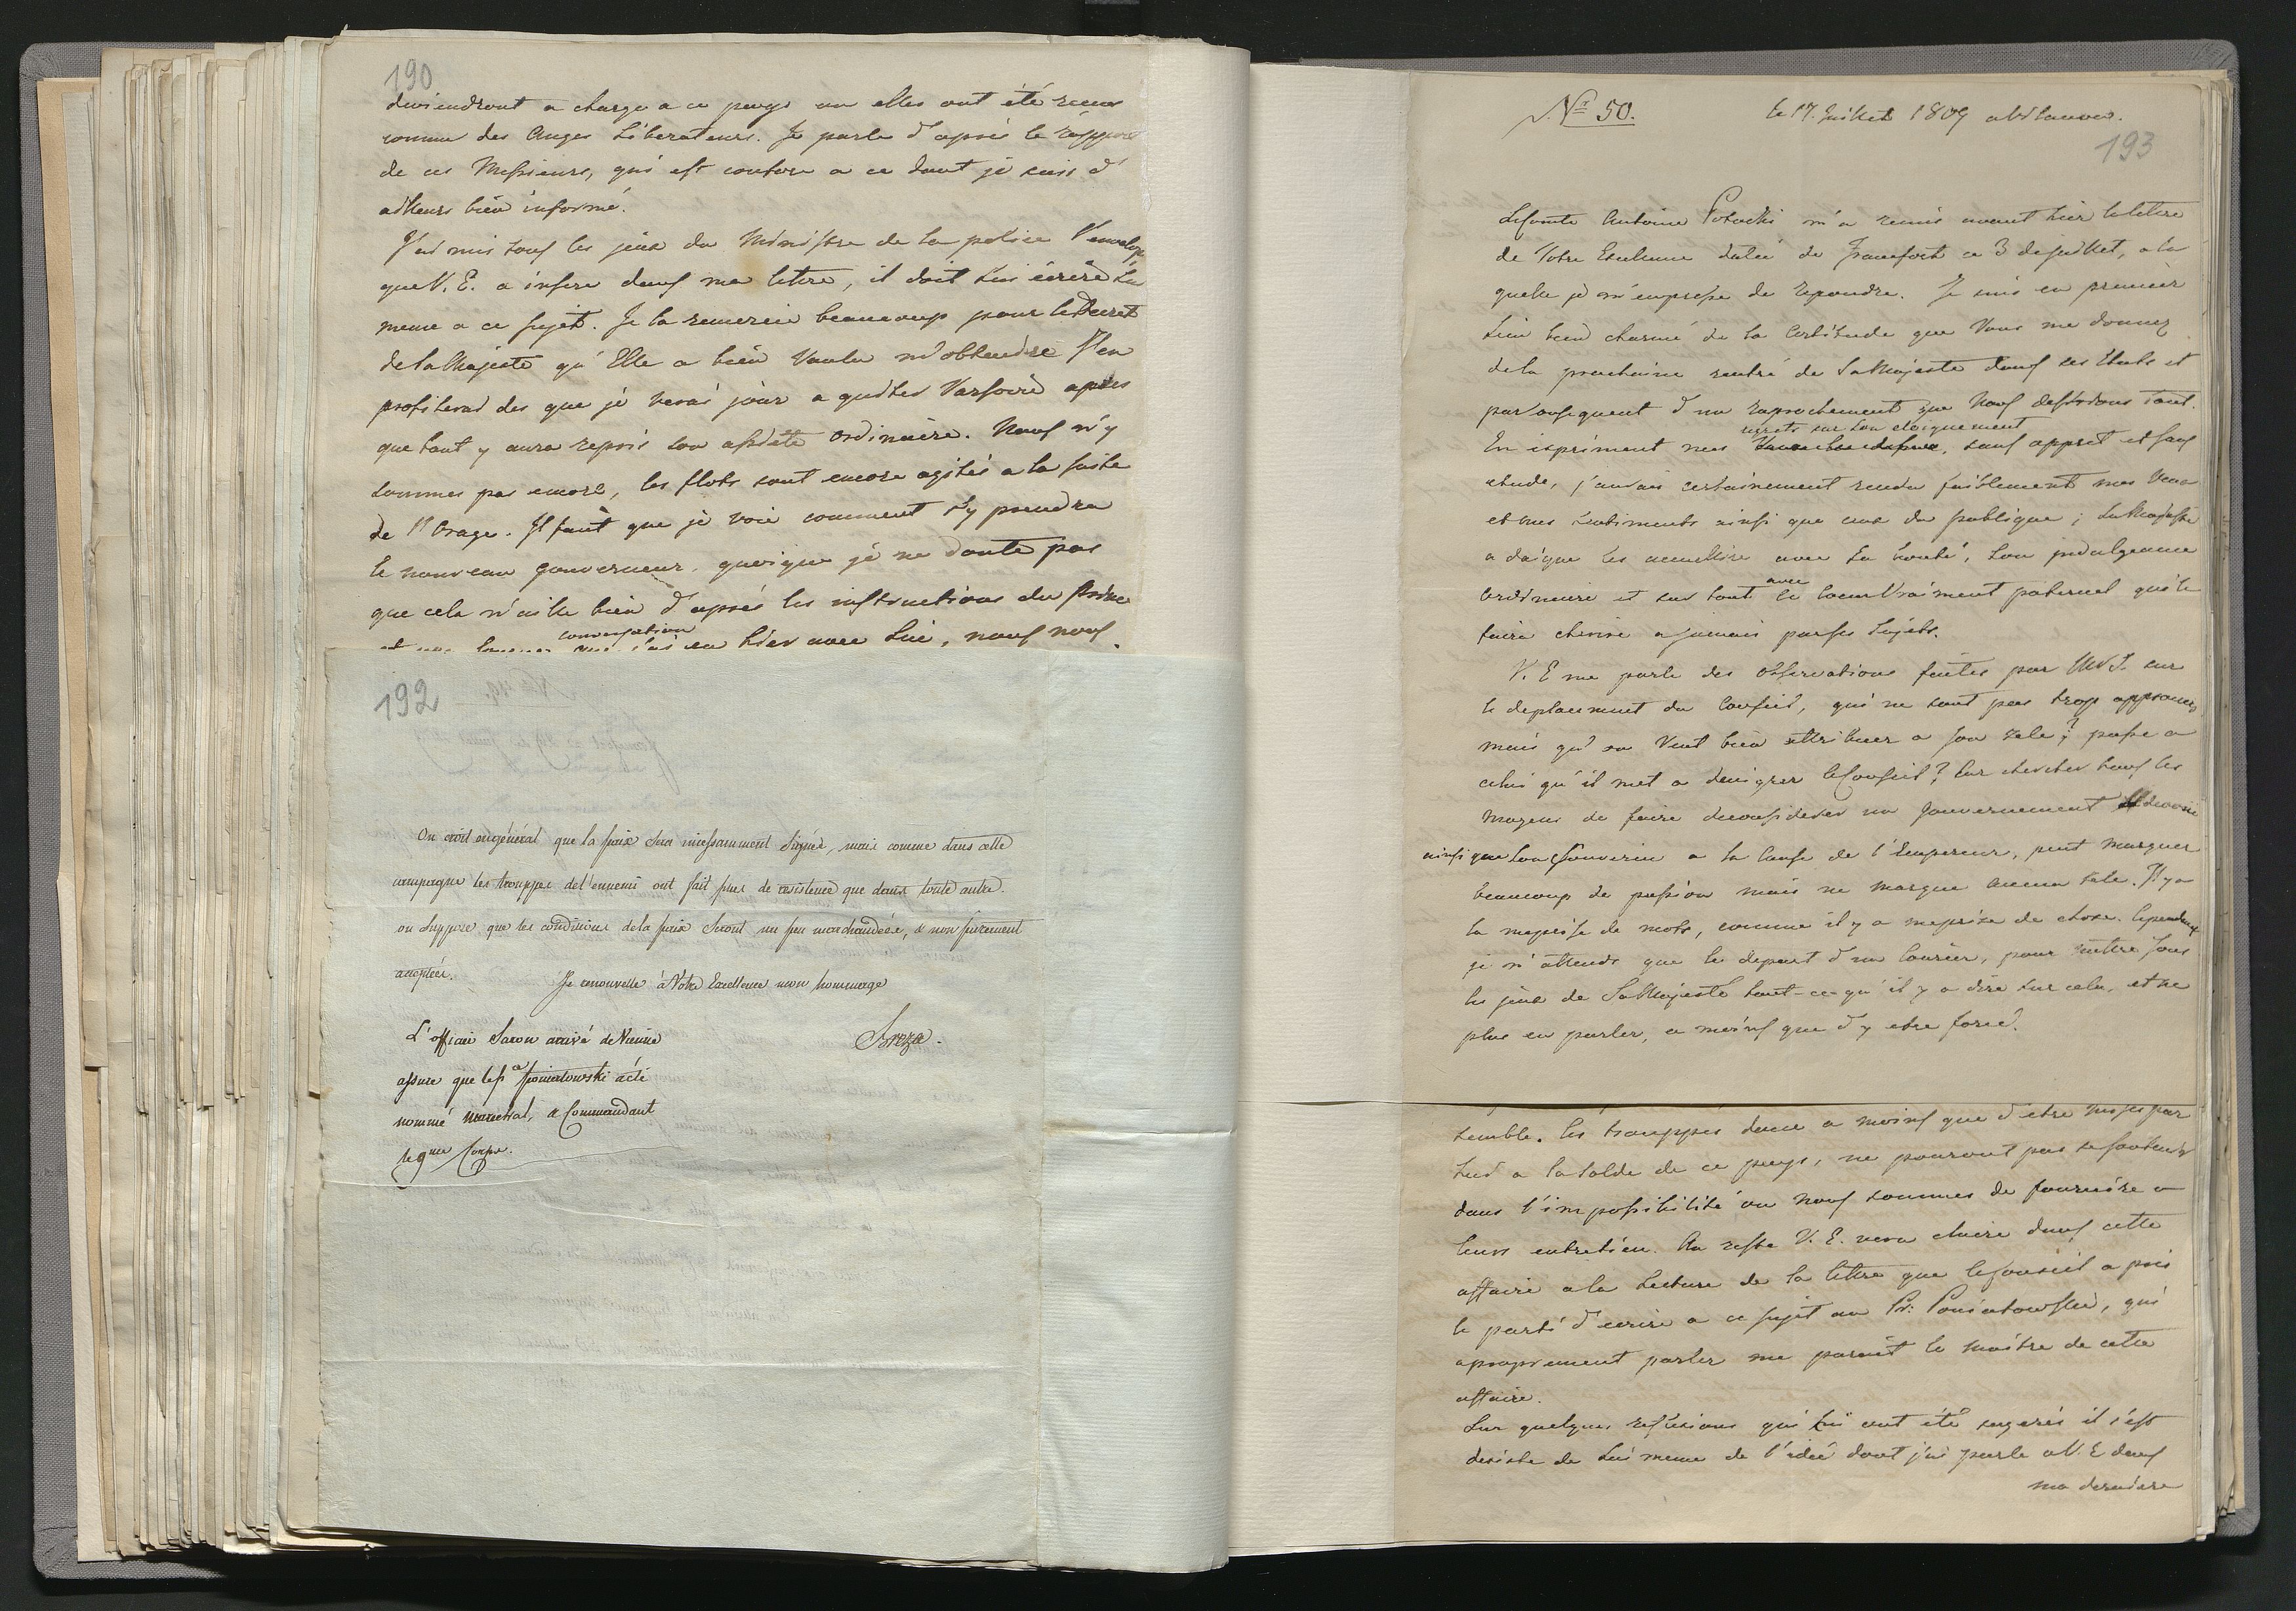 190
deviendront a charge a ce pays ou elles ont été recues
comme des Anges Liberateurs. Je parle d'après le rapport
de ces Messieurs, qui est conforme a ce dont je suis d'
ailleurs bien informé.
J'ai mis sous les jeux du Ministre de la police l'envelope
que V. E. a insere dans ma lettre, il doit Lui écrire Lui
meme a ce sujet. Je la remercie beaucoup pour le Decret
de Sa Majesté qu'Elle a bien voulu m'obtendre J'en
profiterai des que je verai jour a quitter Varsovie apres
que tout y aura repris son assiete ordinaire. Nous n'y
sommes pas encore, les flots sont encore agités a la suite
de l'Orage. Il faut que je voie comment s'y prendra
le nouveau gouverneur, quoique je ne doute pas
que cela n'aille bien d'après les instructions du Prince
conversation
que j'ai eu hier avec Lui, nous nous
192
On croit en général que la paix sera incessamment signée, mais comme dans cette
campagne les trouppes de l'ennemi ont fait plus de resistence que dans toute autre.
on suppose que les conditions de la paix seront un peu marchandées, & non purement
acceptées.
Je renouvelle à Votre Excellence mon hommage
L'officier Saxon arrivé de Vienne
Breza.
assure que le P ce Poniatowski a été
nommé marechal, & Commandant
le 9me Corps.
Nr 50.
le 17. Juillet 1809 a Vilanow.
193
Le Comte Antoine Potocki m'a remis avant hier la lettre
de Votre Excellence datée de Francfort ce 3 de juillet, a la
quelle je m'empresse de repondre. Je suis en premier
Lieu bien charmé de la Certitude que Vous me donnez
de la prochaine rentré de Sa Majesté dans ses Etats et
par consequent d'un raprochement que Nous desirons tant.
regrets sur Son eloignement
En expriment mes sans appret et sans
etude, j'aurais certainement rendu faiblement mes Veux
et mes sentiments ainsi que ceux du publique; Sa Majesté
a daigné les accueillir avec Sa bonté, Son indulgence
avec
ordinaire et sur tout ce Coeur Vraiment paternel qui le
faira cherire a jamais par ses Sujets.
V. E me parle des observations faites par sur
le deplacement du Conseil, qui ne sont pas trop approuvés
mais qu'on Veut bien attribuer a son zele; passe a
celui qu'il met a denigrer le Conseil? Car chercher tous les
moyens de faire deconsiderer un Gouvernement devoué
ainsi que Son Souverein a la Cause de l'Empereur, peut marquer
beaucoup de passion mais ne marque aucun zele. Il y a
la meprise de mots, comme il y a meprise de chose. Cependant
je n'attends que le depart d'un Courier, pour mettre sous
les jeux de Sa Majesté tout-ce-qu'il y a dire sur cela, et ne
plus en parler, a moins que d'y etre forcé.
semble. Les trouppes donc a moins que d'etre mises par
Lui a la Solde de ce pays, ne pouront pas se soutenir
dans l'impossibilité ou Nous sommes de fournire a
leurs entretien. Au reste V. E. vera claire dans cette
affaire a la Lecture de la lettre que le Conseil a pris
le parti d'ecrire a ce sujet au Pr: Poniatowski, qui
apropriement parler me parait le maitre de cette
affaire.
Sur quelques reflexions qui lui ont été sugerés il s'est
desiste de Lui meme de l'idée dont j'ai parlé a V. E dans
ma derniere